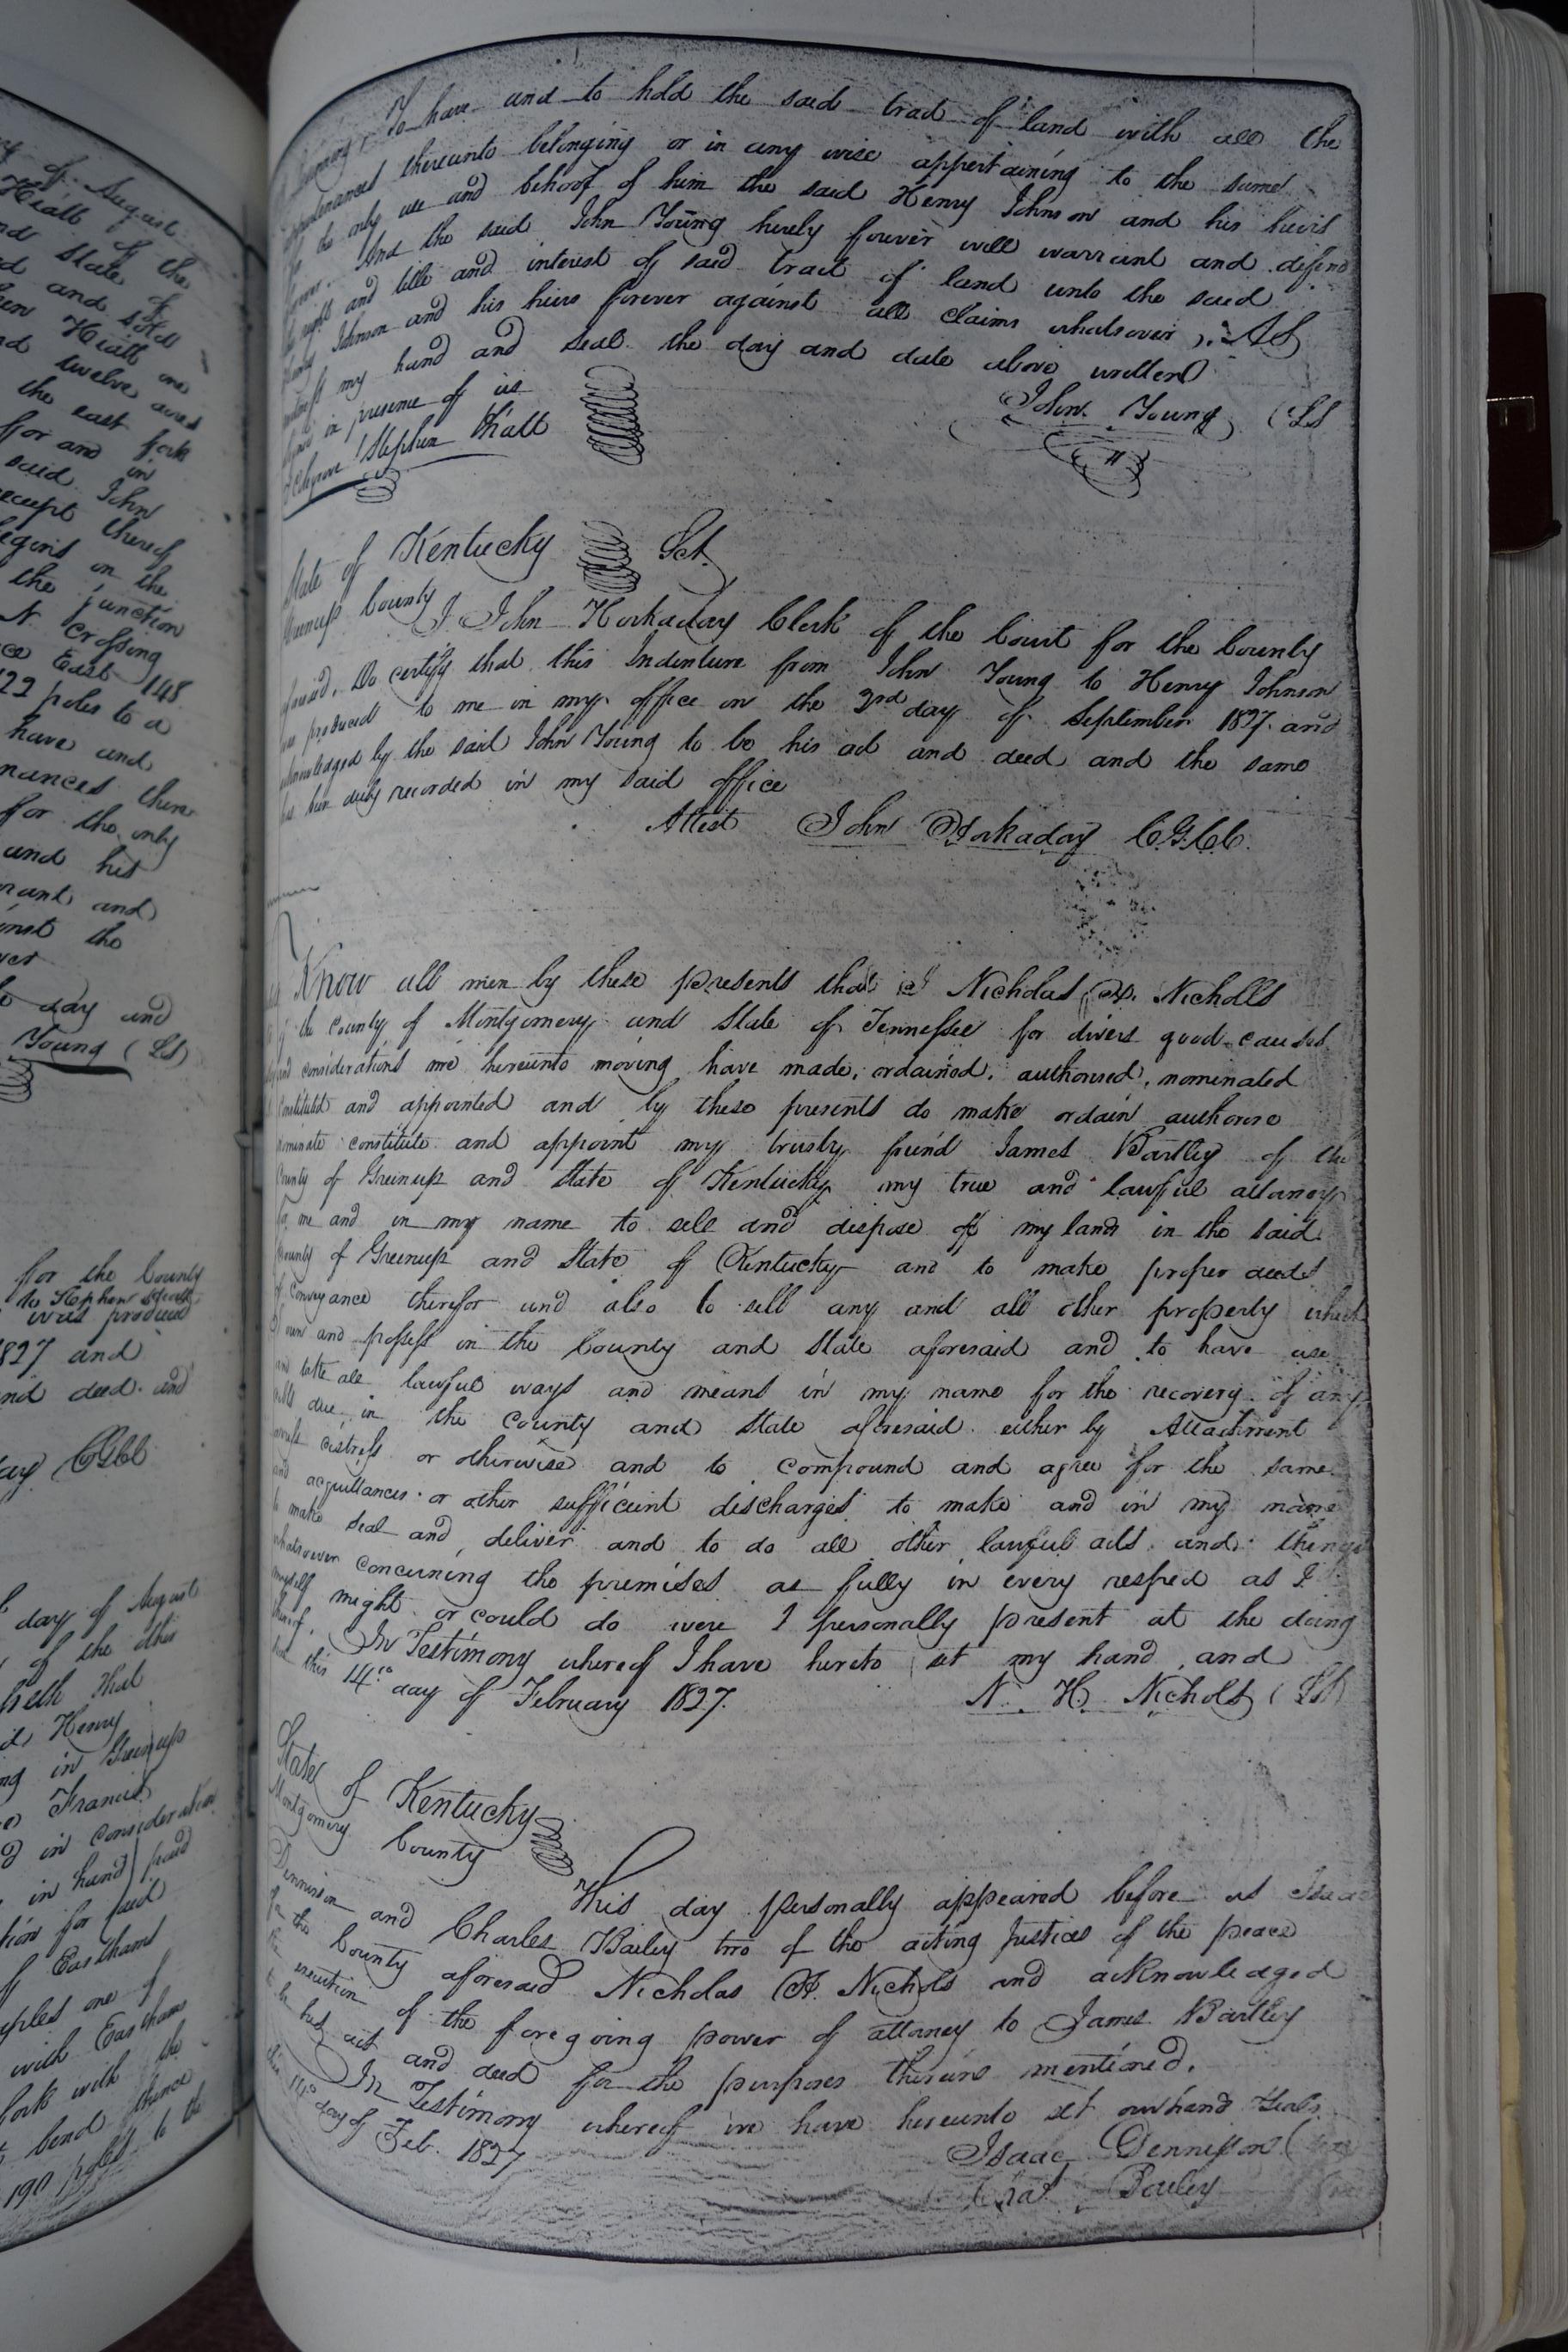 of August
Hiatt of the
State of
and sold
Hiatt one
twelve acres
the east fork
for and in
said John
thereof
begins on the
the junction
N crossing
East 148
122 poles to a
have and
there
for the only
and his
and
the
day and
Young (LS)
for the County
to Stephen Hiatt
was produced
1827 and
and deed and
CGCC
day of August
of the other
that
Henry
in Greenup
Francis
in consideration
in hand paid
for said
of Eastham
one of
with Eastham
fork with the
bend thence
190 poles to the
To have and to hold the said tract of land with all the
appurtenances thereunto belonging or in any wise appertaining to the same
for the only use and behoof of him the said Henry Johnson and his heirs
forever. And the said John Young hereby forever will warrant and defend
the right and title and interest of said tract of land unto the said
Henry Johnson and his heirs forever against all claims whatsoever, As
witness my hand and seal the day and date above written
in presence of us
John Young (LS
Stephen Hiatt
State of Kentucky Sct.
Greenup County
I John Horkaday Clerk of the Court for the County
aforesaid, Do certify that this Indenture from John Young to Henry Johnson
was produced to me in my office on the 2nd day of September 1827 and
acknowledged by the said John Young to be his act and deed and the same
has been duly recorded in my said office
Attest John Horkaday C.G.C.C.
Know all men by these presents that I Nicholas H. Nicholls
of the County of Montgomery and State of Tennessee for divers good causes
and considerations me hereunto moving have made, ordained, authorised, nominated
constituted and appointed and by these presents do make ordain authorise
nominate constitute and appoint my trusty friend James Bartley of the
County of Greenup and State of Kentucky my true and lawful attorney
for me and in my name to sell and dispose of my land in the said
County of Greenup and State of Kentucky and to make proper deeds
of conveyance therefor and also to sell any and all other property which
I own and possess in the County and State aforesaid and to have use
and take all lawful ways and means in my name for the recovery of any
debts due in the County and State aforesaid either by Attachment
arrest distress or otherwise and to compound and agree for the same
and acquittances or other sufficient discharges to make and in my name
to make seal and deliver and to do all other lawful acts and things
whatsoever concerning the premises as fully in every respect as I
myself might or could do were I personally present at the doing
thereof. In Testimony whereof I have hereto set my hand and
seal this 14th day of February 1827. N. H. Nichols (LS)
State of Kentucky
Montgomery County
This day personally appeared before us Isaac
Dennison and Charles Bailey two of the acting Justices of the peace
for the County aforesaid Nicholas H. Nichols and acknowledged
the execution of the foregoing power of attorney to James Bartley
to be his act and deed for the purposes therein mentioned.
In Testimony whereof we have hereunto set our hand & seals
this 14th day of Feb. 1827
Isaac Dennisson
Chas Bailey